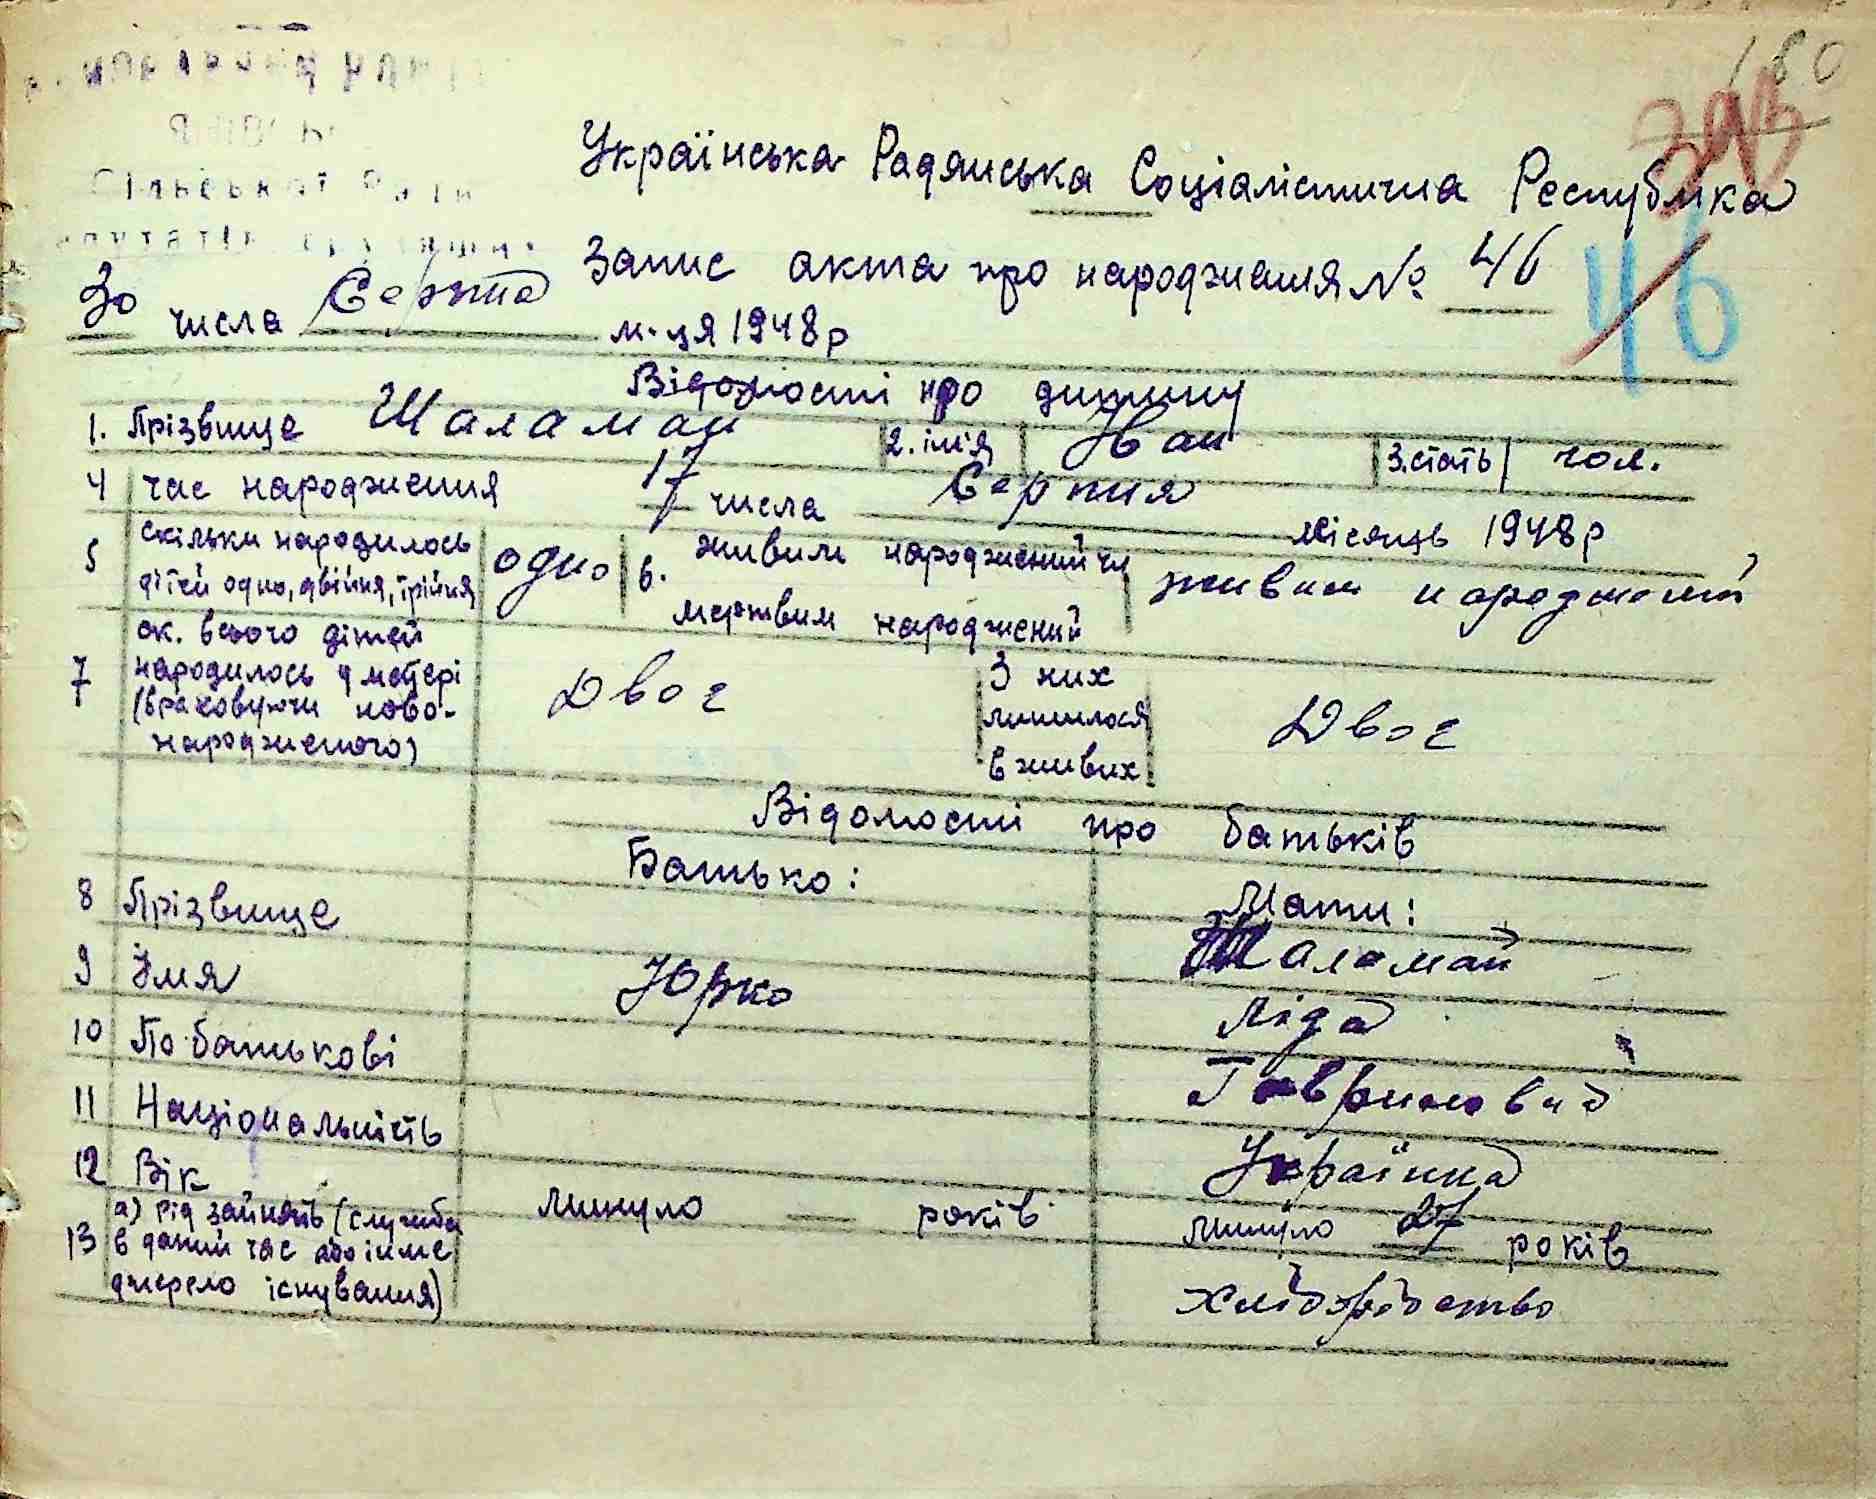 180
Сільської Ради
Українська Радянська Соціалістична Республіка
Запис акта про народження № 46
46
30 числа Серпня м-ця 1948 р
Відомості про дитину
1. Прізвище Шаламай 2. імія Іван 3. стать чол.
4 час народження 17 числа Серпня місяць 1948 р
5 скільки народилось дітей одно, двійня, трійня одно 6. живим народжений чи мертвим народжений живим народжений
7 ск. всього дітей народилось у матері (враховуючи ново-народженого) Двоє З них лишилося в живих Двоє
Відомості про батьків
Батько: Мати:
8 Прізвище Шаламай
9 Імя Юрко Ліда
10 По батькові Гавриловна
11 Національність Українка
12 Вік минуло — років минуло 27 років
13 а) рід занять (служба в даний час або інше джерело існування) хліборобство